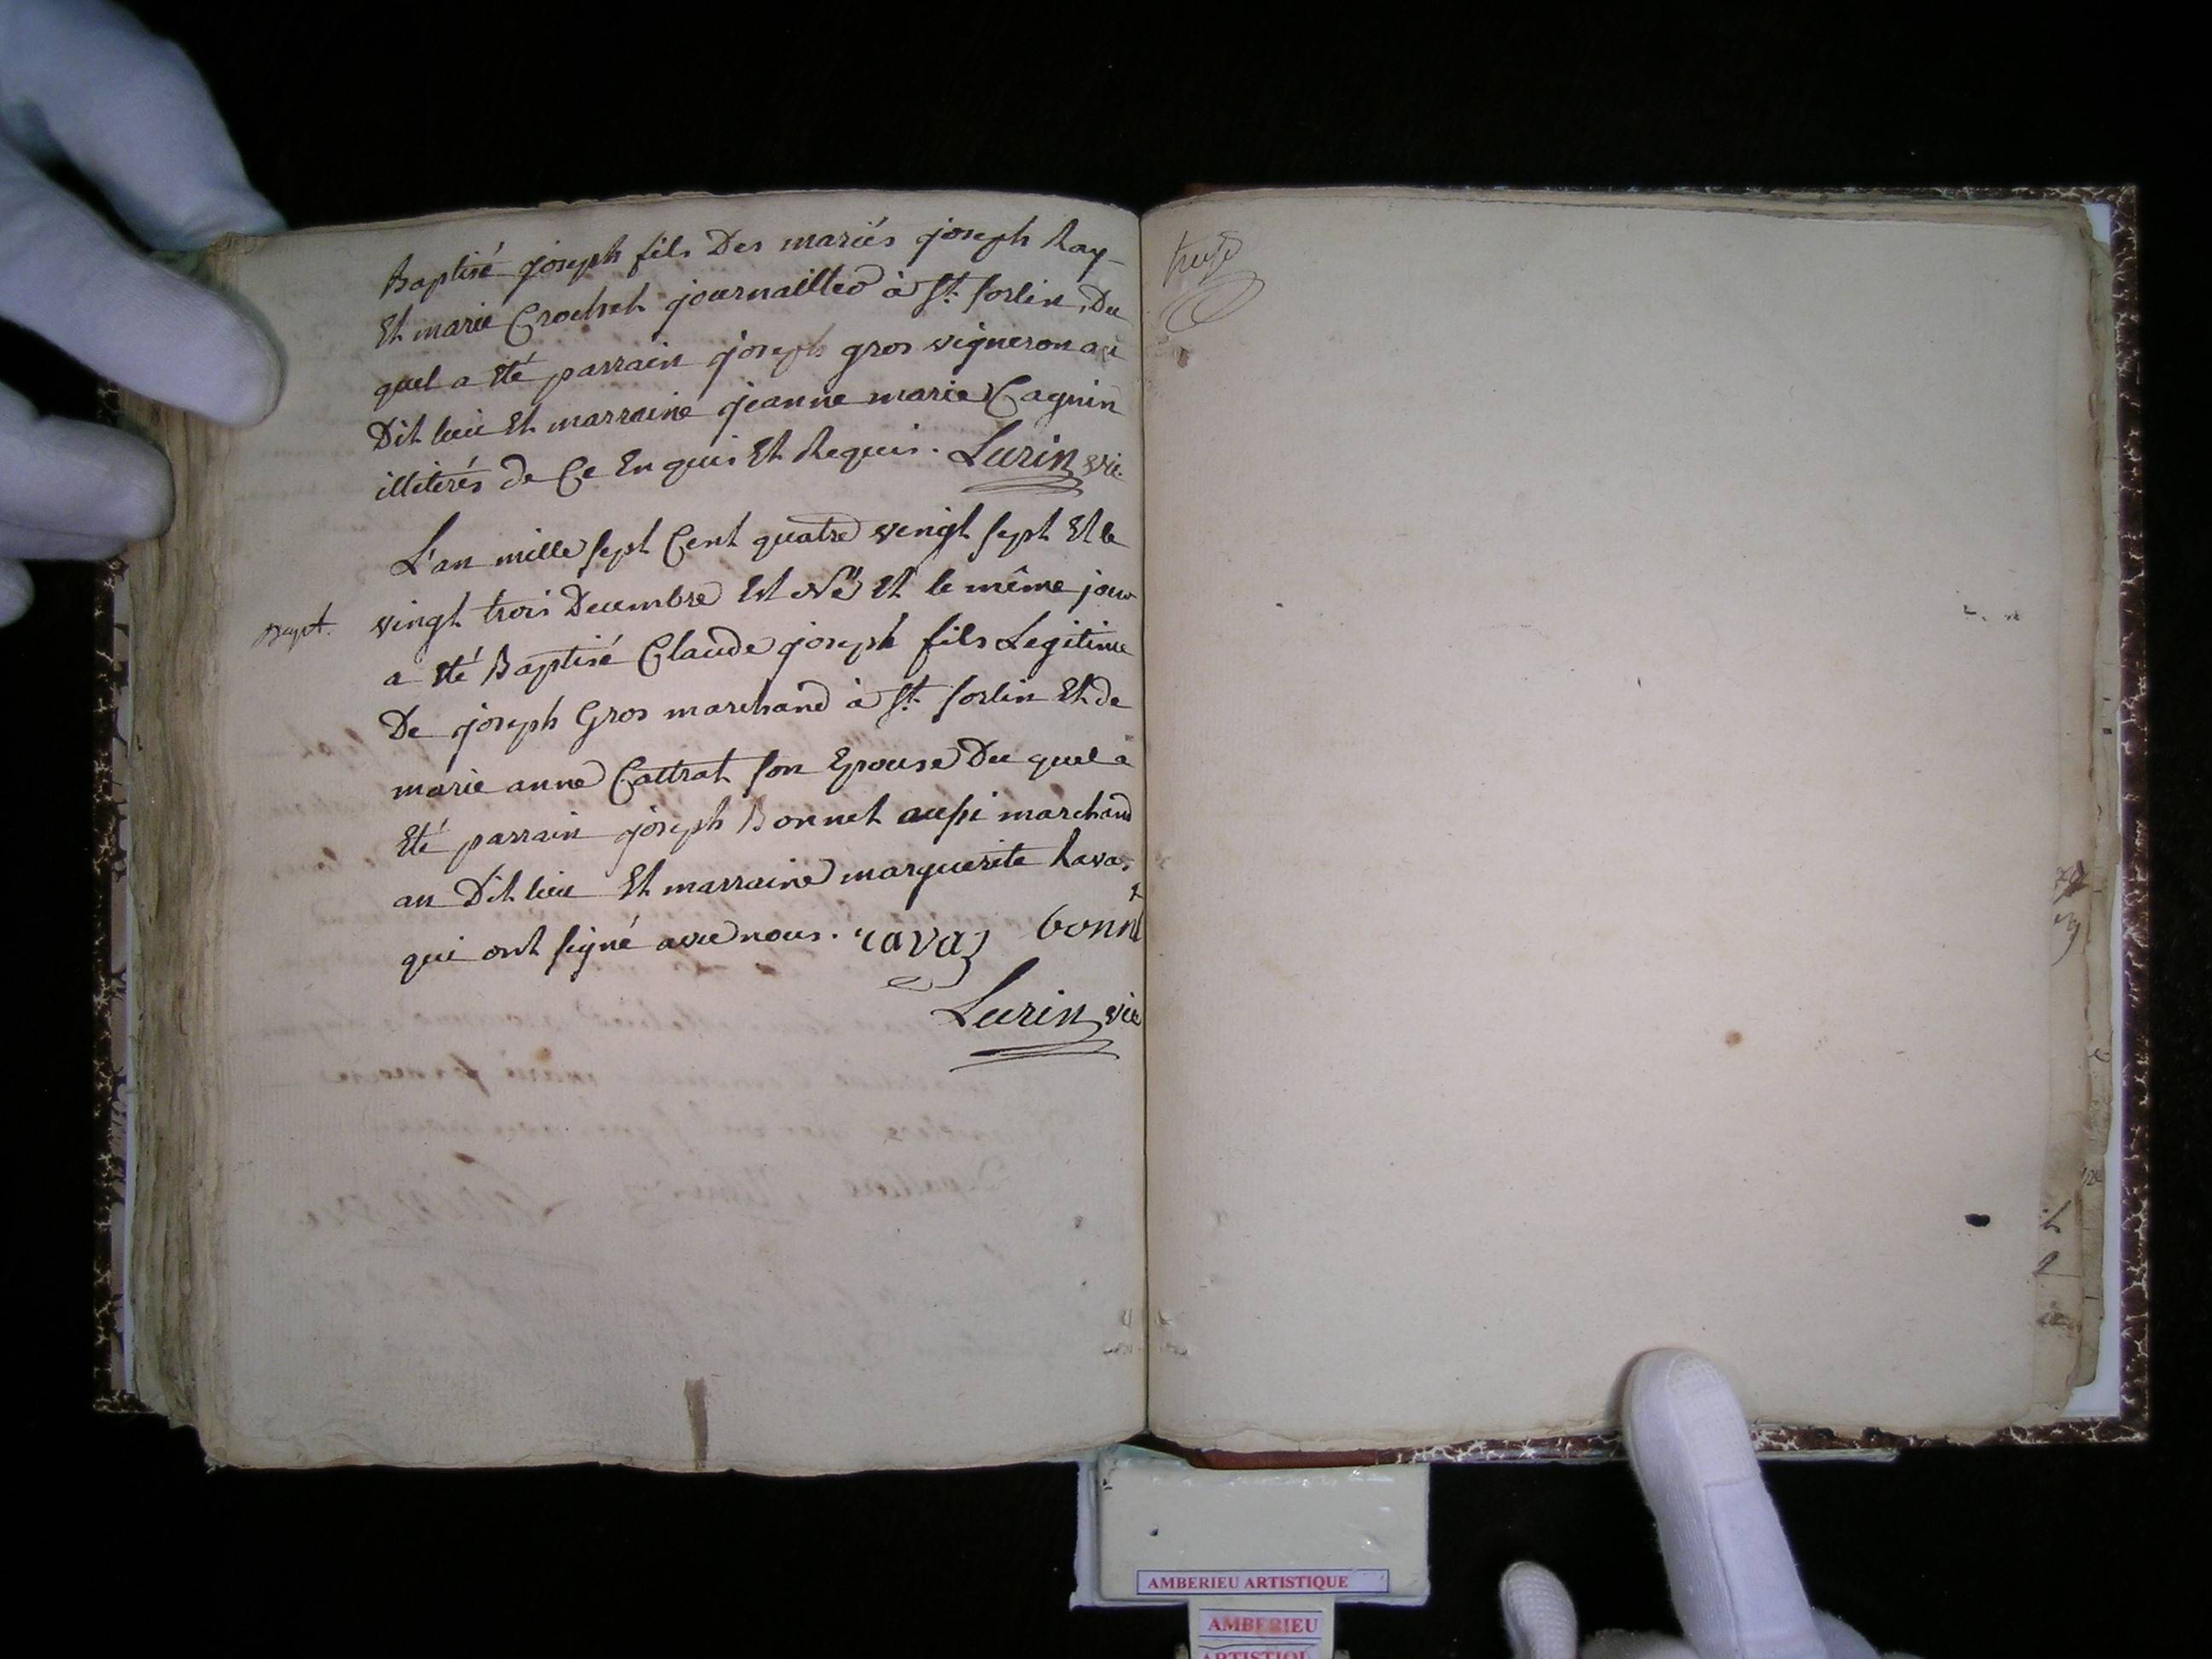 Baptisé joseph fils Des mariés joseph Ray
Et marie Crochet journaillier à St. Sorlin, Du
quel a Eté parrain joseph gros vigneron au
Dit lieu Et marraine jeanne marie Cagnin
illiterés de Ce Enquis Et Requis. Lurin vic.
L'an mille sept Cent quatre vingt sept Et le
Bapt. vingt trois Decembre Est Né Et le même jour
a Eté Baptisé Claude joseph fils Legitime
De joseph Gros marchand à St. Sorlin Et de
marie anne Cattrat son Epouse Du quel a
Eté parrain joseph Bonnet aussi marchand
au Dit lieu Et marraine marguerite Ravaz
qui ont signé avec nous. ravaz bonnet
Lurin vic
AMBERIEU ARTISTIQUE
AMBERIEU
ARTISTIQUE